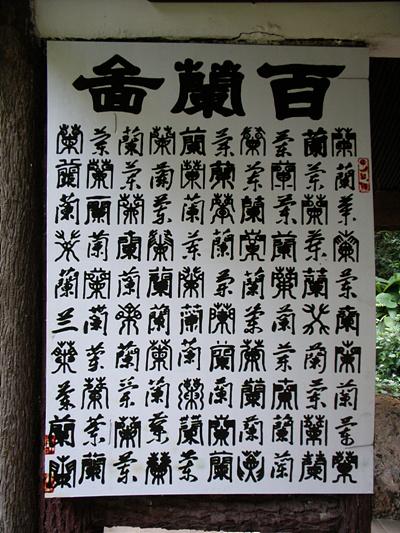 百蘭圖
蘭蘭蘭蘭蘭蘭蘭蘭蘭蘭
蘭蘭蘭蘭蘭蘭蘭蘭蘭蘭
蘭蘭蘭蘭蘭蘭蘭蘭蘭蘭
蘭蘭蘭蘭蘭蘭蘭蘭蘭蘭
蘭蘭蘭蘭蘭蘭蘭蘭蘭蘭
蘭蘭蘭蘭蘭蘭蘭蘭蘭蘭
蘭蘭蘭蘭蘭蘭蘭蘭蘭蘭
蘭蘭蘭蘭蘭蘭蘭蘭蘭蘭
蘭蘭蘭蘭蘭蘭蘭蘭蘭蘭
蘭蘭蘭蘭蘭兰蘭蘭蘭蘭